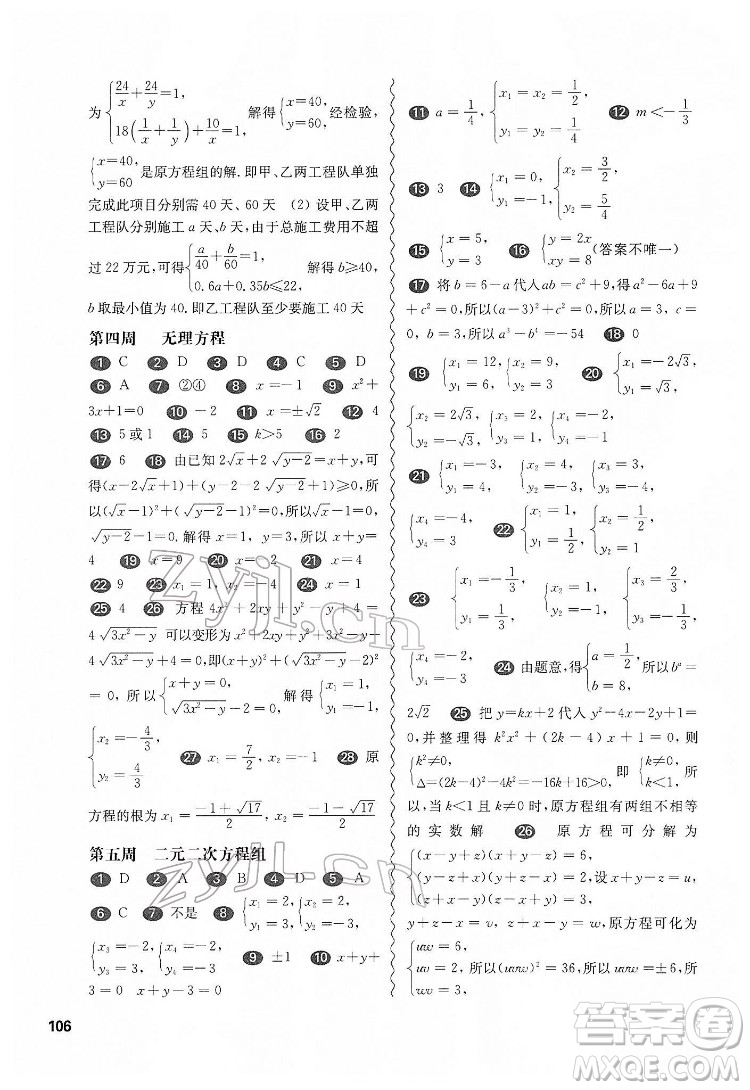 为{24/x+24/y=1, 18(1/x+1/y)+10/y=1, 解得{x=40, y=60. 经检验,
{x=40, y=60 是原方程组的解. 即甲、乙两工程队单独
完成此项目分别需 40 天、60 天 (2) 设甲、乙两
工程队分别施工 a 天、b 天, 由于总施工费用不超
过 22 万元, 可得{a/40+b/60=1, 0.6a+0.35b≤22. 解得 b≥40.
b 取最小值为 40. 即乙工程队至少要施工 40 天
第四周 无理方程
1 C 2 D 3 D 4 C 5 D
6 A 7 ②④ 8 x=-1 9 x²+
3x+1=0 10 -2 11 x=±√2 12 4
13 5 或 1 14 5 15 k>5 16 2
17 6 18 由已知 2√x+2√(y-2)=x+y, 可
得(x-2√x+1)+(y-2-2√(y-2)+1)≥0, 所
以(√x-1)²+(√(y-2)-1)²=0, 所以√x-1=0,
√(y-2)-1=0. 解得 x=1, y=3, 所以 x+y=
4 19 x=9 20 x=2 21 x=4
22 9 23 x=-1 24 x=1
25 4 26 方程 4x²+2xy+y²-y+4=
4√(3x²-y) 可以变形为 x²+2xy+y²+3x²-y-
4√(3x²-y)+4=0, 即(x+y)²+(√(3x²-y)-2)²=
0, 所以{x+y=0, √(3x²-y)-2=0. 解得{x₁=1, y₁=-1,
{x₂=-4/3, y₂=4/3 27 x₁=7/2, x₂=-1 28 原
方程的根为 x₁=(-1+√17)/2, x₂=(-1-√17)/2
第五周 二元二次方程组
1 D 2 A 3 B 4 A 5 D
6 C 7 不是 8 {x₁=2, y₁=3, {x₂=2, y₂=-3,
{x₃=-2, y₃=3, {x₄=-2, y₄=-3 9 ±1 10 x+y+
3=0 x+y-3=0
11 a=1/4, {x₁=x₂=1/2, y₁=y₂=1 12 m<-1/3
13 3 14 {x₁=1, y₁=-1, {x₂=3/2, y₂=5/4
15 {x=5, y=3 16 {y=2x, x-y=0 (答案不唯一)
17 将 b=6-a 代入 ab=c²+9, 得 c²+a²-6a+9
=0, 所以(a-3)²+c²=0. 所以 a=3, c=0, b=3.
c²=0, 所以 a³-b⁴=-54 18 0
19 {x₁=12, y₁=6, {x₂=9, y₂=3 20 {x₁=-2√3, y₁=√3,
{x₂=2√3, y₂=-√3, {x₃=1, y₃=1, {x₄=-1, y₄=-1
21 {x₁=-3, y₁=4, {x₂=3, y₂=-4, {x₃=4, y₃=-3,
{x₄=-4, y₄=3 22 {x₁=-1, y₁=0, {x₂=1/2, y₂=1/2
23 {x₁=-1/3, y₁=1/3, {x₂=-1, y₂=1, {x₃=1/2, y₃=1/2,
{x₄=-1/2, y₄=-1/2 24 由题意, 得{a=1/2, b=8, 所以 bᵃ=
2√2 25 把 y=kx+2 代入 y²-4x-2y+4=
0, 并整理得 k²x²+(2k-4)x+4=0. 则
{k≠0, Δ=(2k-4)²-4×4k²=-16k+16>0, 即{k≠0, k<1. 所
以, 当 k<1 且 k≠0 时, 原方程组有两组不相等
的实数解 26 原方程可分解为
{(x-y+z)(x+y-z)=6, (y-z+x)(y+z-x)=2, (z-x+y)(z+x-y)=3, 设 x+y-z=u,
y+z-x=v, z+x-y=w, 原方程可化为
{uw=6, uv=2, wv=3, 所以(uvw)²=36, 所以 uvw=±6,
106
zyjl.cn
zyjl.cn
答案圈
MXQE.COM